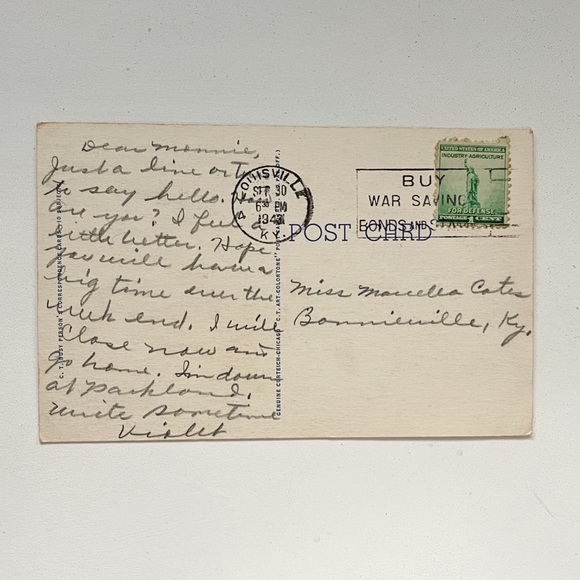 Dear Monnie,
Just a line or two
to say hello. How
are you? I feel a
little better. Hope
you will have a
big time over the
week end. I will
close now and
go home. I'm down
at Parkland.
Write sometime
Violet
LOUISVILLE
SEP 30
6 PM
194
KY.
BUY
WAR SAVINGS
BONDS AND STAMPS
UNITED STATES OF AMERICA
INDUSTRY AGRICULTURE
FOR DEFENSE
POSTAGE 1 CENT
POST CARD
Miss Marcella Cates
Bonnieville, Ky.
C. T. BUSY PERSON'S CORRESPONDENCE CARDS—10
GENUINE CURTEICH-CHICAGO "C. T. ART-COLORTONE" POST CARD OFF.)